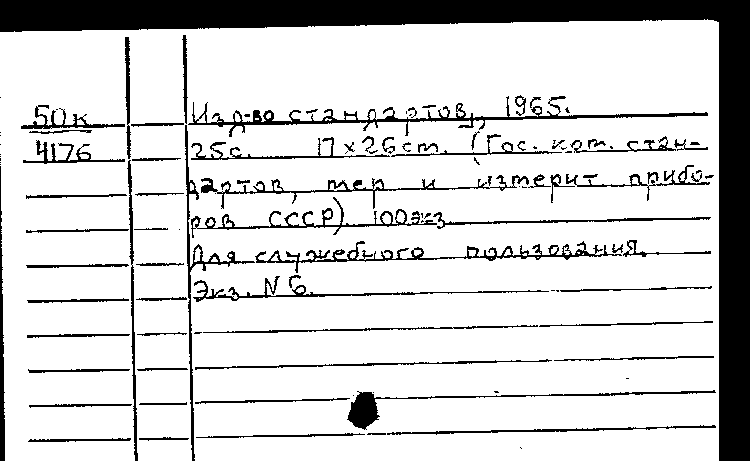 50к
4176
Изд-во стандартов, 1965.
25с. 17×26 ст. (Гос. ком. стан-
дартов, мер и измерит прибо-
ров СССР) 100экз
Для служебного пользования.
Экз. N 6.